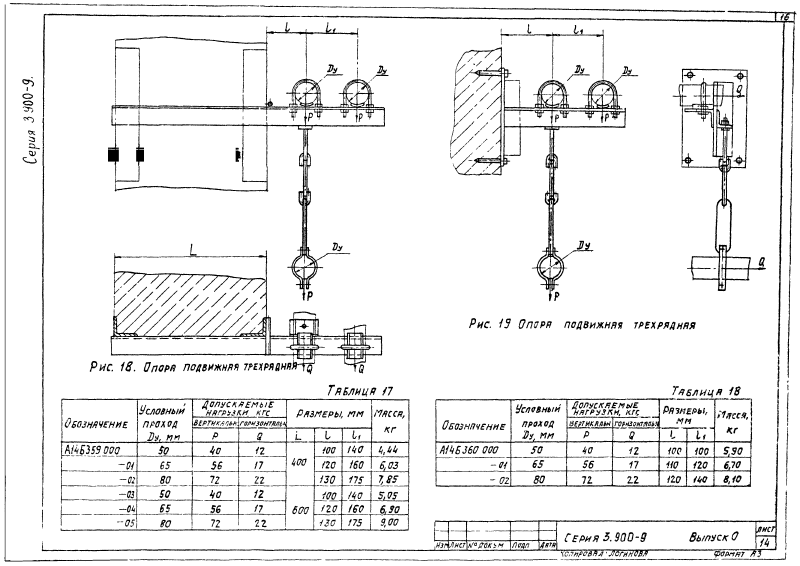 16
Серия 3.900-9.
l l1
Dy Dy
P P
Dy
P
L
Q Q
Рис. 18. Опора подвижная трехрядная
l l1
Dy Dy
P P
Dy
P
Q
Q
Рис. 19 Опора подвижная трехрядная
Таблица 17
Обозначение | Условный проход Dy, мм | Допускаемые нагрузки, кгс | Размеры, мм | Масса, кг
вертикальн P | горизонтальн Q | L | l | l1
А14Б359 000 50 40 12 400 100 140 4,44
-01 65 56 17 120 160 6,03
-02 80 72 22 130 175 7,85
-03 50 40 12 600 100 140 5,05
-04 65 56 17 120 160 6,90
-05 80 72 22 130 175 9,00
Таблица 18
Обозначение | Условный проход Dy, мм | Допускаемые нагрузки, кгс | Размеры, мм | Масса, кг
вертикальн P | горизонтальн Q | l | l1
А14Б360 000 50 40 12 100 100 5,90
-01 65 56 17 110 120 6,70
-02 80 72 22 120 140 8,10
Изм Лист № докум Подп Дата
Серия 3.900-9 Выпуск 0
Лист
14
Копировал: Логинова Формат А3